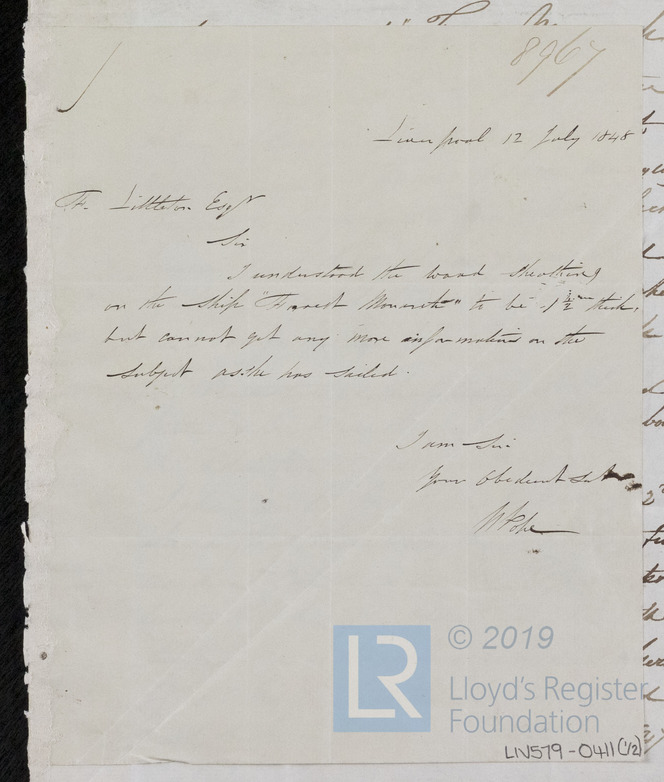 8967
Liverpool 12 July 1848
F. Littleton Esqr
Sir
I understood the wood sheathing
on the Ship "Forrest Monarch" to be 1 1/2 in thick,
but cannot get any more information on the
subject as she has sailed.
I am Sir
Your Obedient Sert
W Pope
LR
© 2019
Lloyd's Register
Foundation
LIV579-0411(1/2)